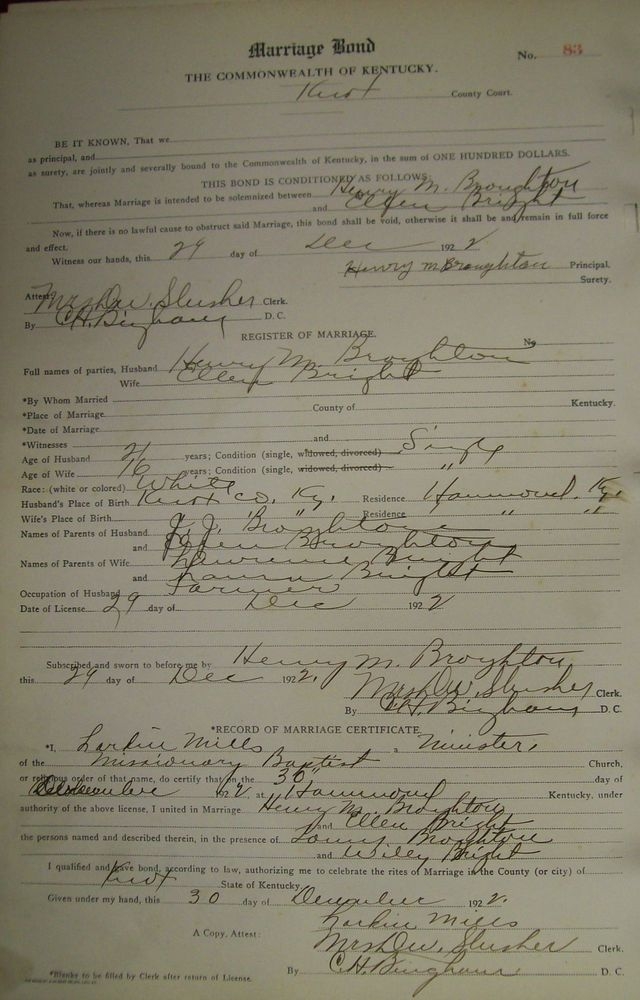 Marriage Bond
No. 83
THE COMMONWEALTH OF KENTUCKY.
Knox County Court.
BE IT KNOWN, That we
as principal, and
as surety, are jointly and severally bound to the Commonwealth of Kentucky, in the sum of ONE HUNDRED DOLLARS.
THIS BOND IS CONDITIONED AS FOLLOWS:
That, whereas Marriage is intended to be solemnized between Henry M. Broughton
and Ellen Bright
Now, if there is no lawful cause to obstruct said Marriage, this bond shall be void, otherwise it shall be and remain in full force
and effect.
Witness our hands, this 29 day of Dec 1922
Henry M Broughton Principal.
Surety.
Attest: Mrs D W. Slusher Clerk.
By C.H. Bingham D. C.
REGISTER OF MARRIAGE.
No
Full names of parties, Husband Henry M Broughton
Wife Ellen Bright
*By Whom Married
*Place of Marriage County of Kentucky.
*Date of Marriage
*Witnesses and
Age of Husband 21 years; Condition (single, widowed, divorced) Single
Age of Wife 16 years; Condition (single, widowed, divorced) "
Race: (white or colored) White
Husband's Place of Birth Knox Co. Ky. Residence Hammond. Ky.
Wife's Place of Birth " " Residence " "
Names of Parents of Husband J. J. Broughton
and Broughton
Names of Parents of Wife Lawrence Bright
and Laura Bright
Occupation of Husband Farmer
Date of License 29 day of Dec 1922
Subscribed and sworn to before me by Henry M. Broughton
this 29 day of Dec 1922.
Mrs D W. Slusher Clerk.
By C.H. Bingham D. C.
*RECORD OF MARRIAGE CERTIFICATE.
*I, Larkin Mills a Minister,
of the Missionary Baptist Church,
or religious order of that name, do certify that on the 30 day of
December 1922 at Hammond Kentucky, under
authority of the above license, I united in Marriage Henry M. Broughton
and Ellen Bright
the persons named and described therein, in the presence of Broughton
and Willey Bright
I qualified and gave bond, according to law, authorizing me to celebrate the rites of Marriage in the County (or city) of
Knox State of Kentucky.
Given under my hand, this 30 day of December 1922.
Larkin Mills
A Copy, Attest: Mrs D W. Slusher Clerk.
By C.H. Bingham D. C.
*Blanks to be filled by Clerk after return of License.